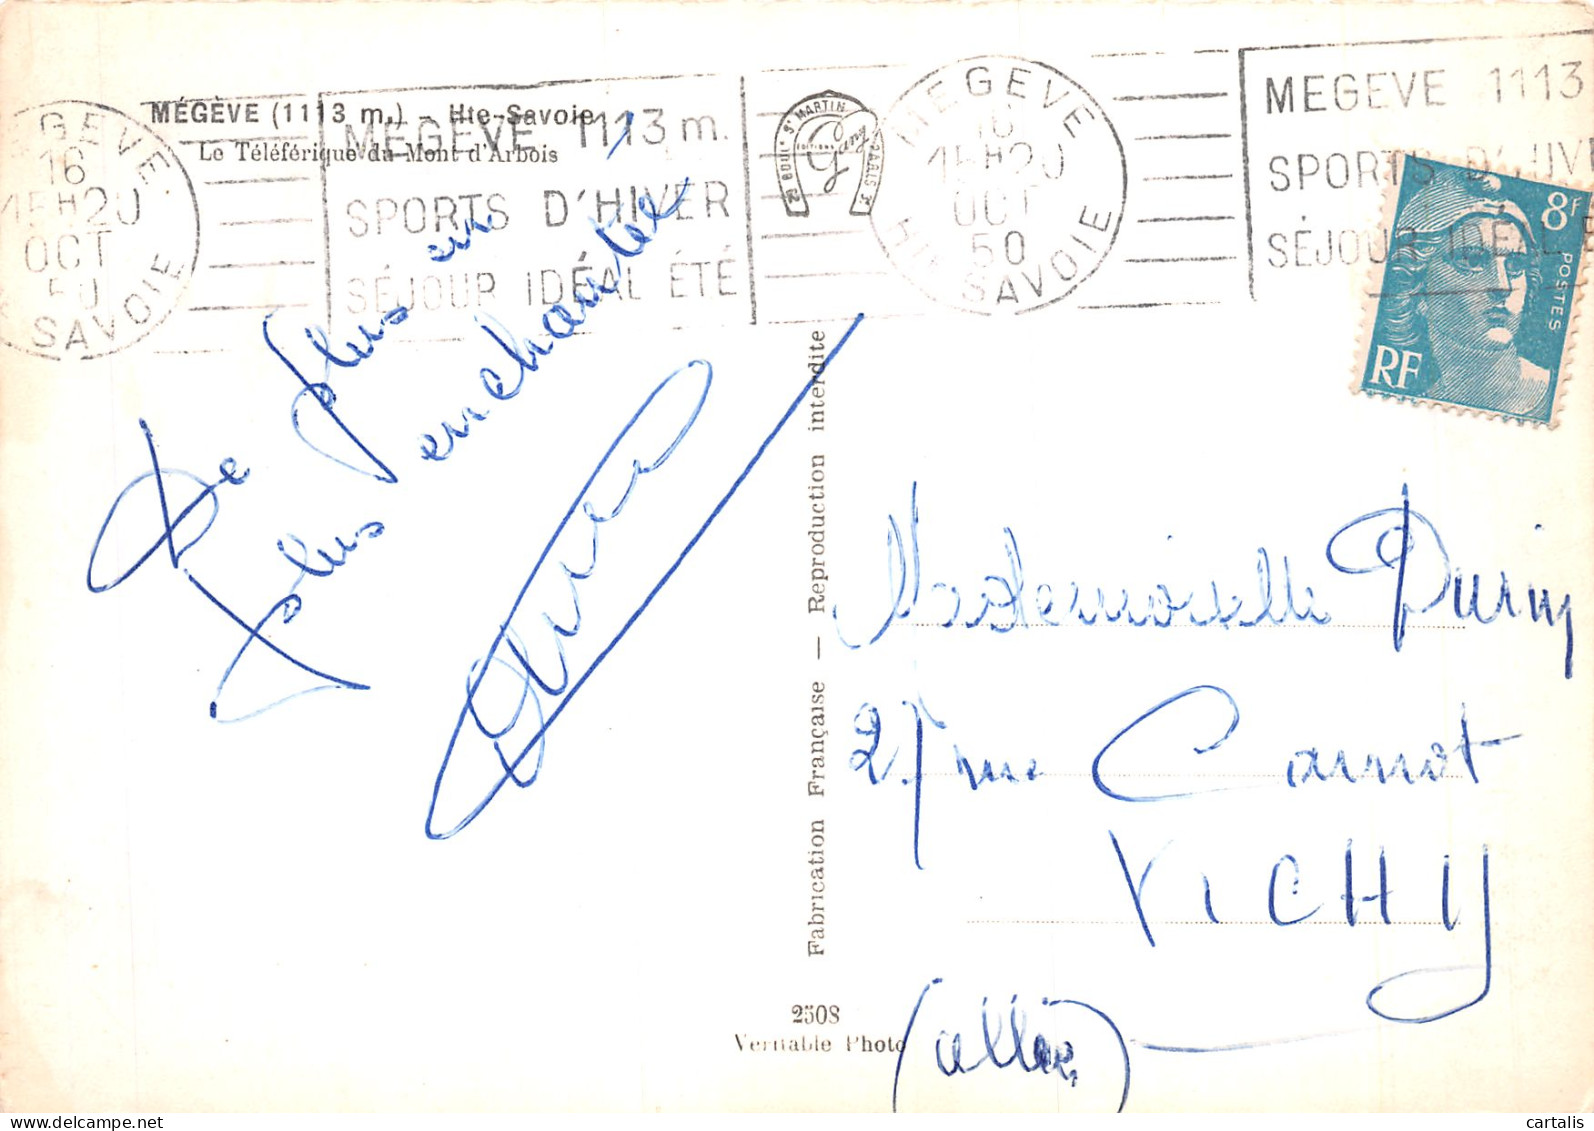 MÉGÈVE (1113 m.) - Hte-Savoie
Le Téléférique du Mont d'Arbois
MEGEVE
16
15H20
OCT
50
SAVOIE
MEGEVE 1113 m.
SPORTS D'HIVER
SÉJOUR IDÉAL ÉTÉ
BOULd St MARTIN
EDITIONS
Gany
PARIS 3e
MEGEVE
16
15H20
OCT
50
Hte SAVOIE
MEGEVE 1113
SPORTS D'HIVE
SÉJOUR IDÉAL É
8F
POSTES
RF
De plus en
plus enchantée
Fabrication Française — Reproduction interdite
Mademoiselle Durin
27 rue Carnot
VICHY
(allier)
2508
Véritable Photo
cartalis
delcampe.net